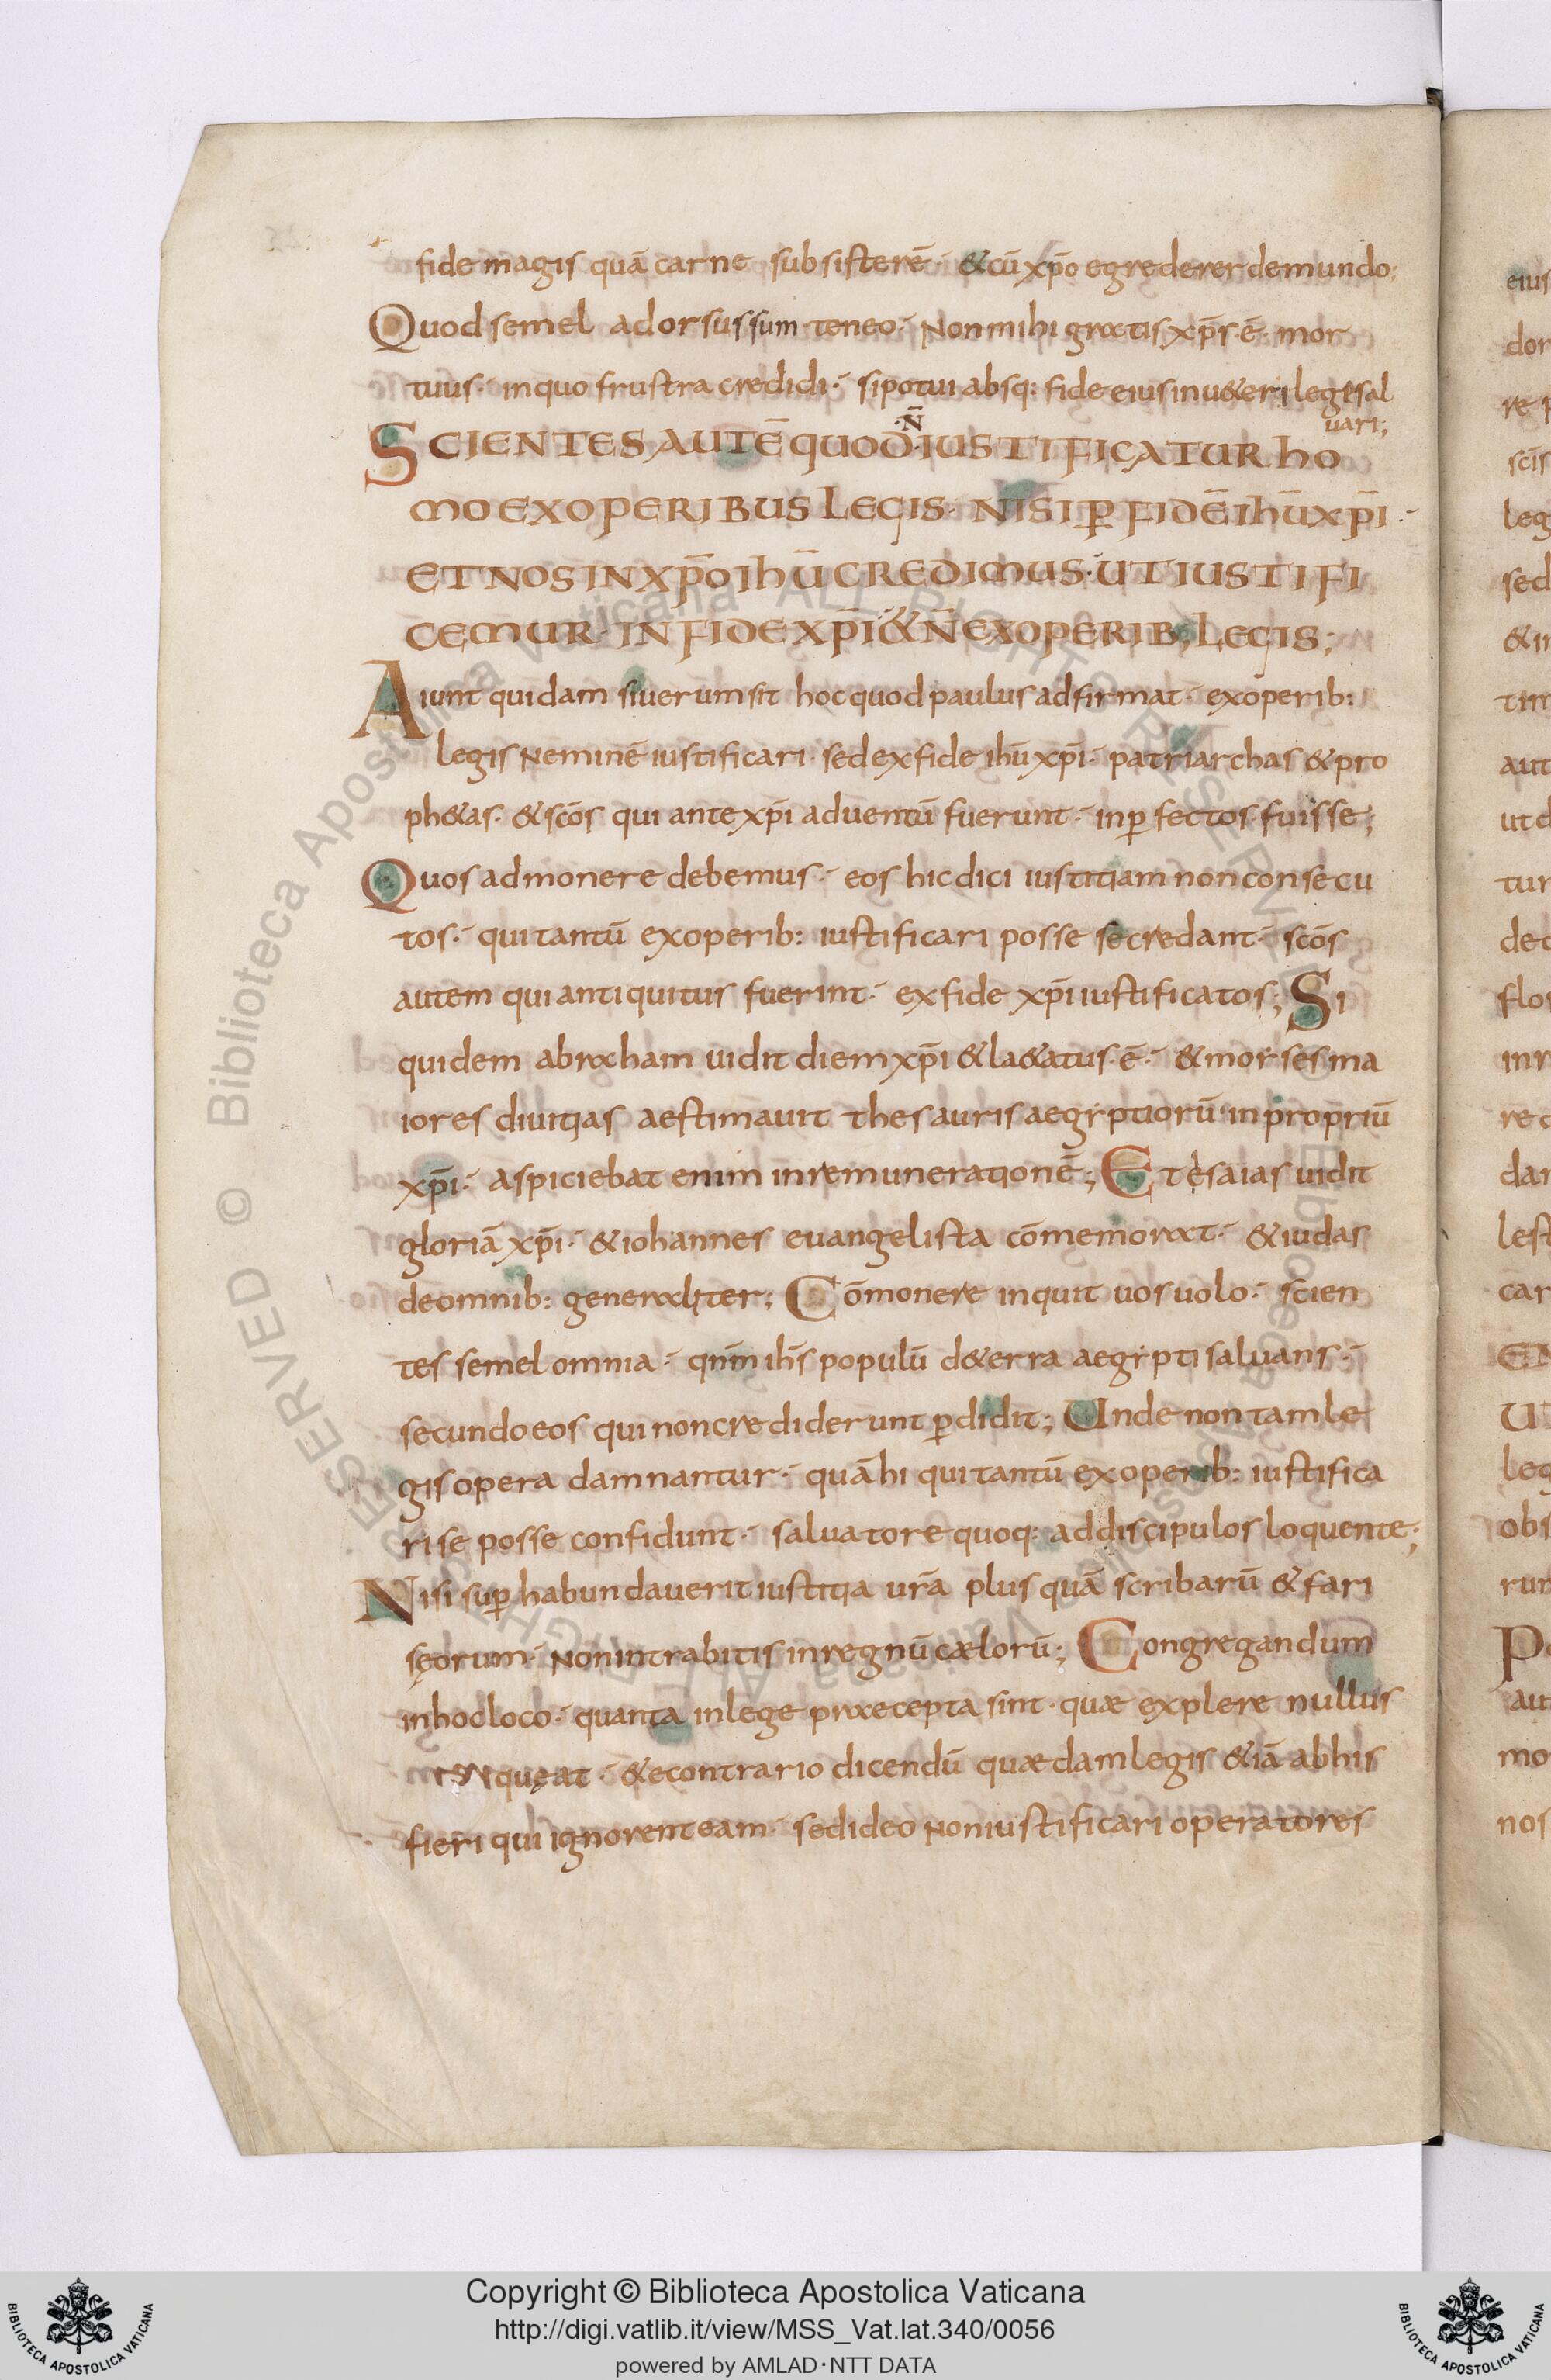 fide magis quā carne subsisterē· & cū xp̄o egrederer de mundo·
Quod semel adorsus sum teneo· Non mihi gratis xp̄s· ē· mor
tuus· in quo frustra credidi· si potui absq: fide eius in u&eri lege sal
uari;
·N̄
SCIENTES AUTĒ QUOD·IUSTIFICATUR ho
MO EX OPERIBUS LEGIS· NISI P̲ FIDĒ Ihū XP̄I·
ET NOS IN XP̄O Ihū CREDIMUS· UT IUSTIFI
CEMUR· IN FIDE XP̄I & N̄ EX OPERIB; LEGIS;
Aiunt quidam si uerum sit hoc quod paulus adfirmat· ex operib:
legis Neminē iustificari· sed ex fide ihū xp̄i· patriarchas & pro
ph&as· & scōs qui ante xp̄i aduentū fuerunt· inp̲fectos fuisse;
Quos admonere debemus· eos hic dici iustitiam non consecu
tos· qui tantū ex operib: iustificari posse se credant· scōs
autem qui antiquitus fuerint· ex fide xp̄i iustificatos; Si
quidem abraham uidit diem xp̄i & la&atus· ē· & moẏses ma
iores diuitias aestimauit thesauris aegẏptiorū inpropriū
xp̄i· aspiciebat enim in remunerationē; Et esaias uidit
gloriā xp̄i· & iohannes euangelista cōmemorat· & iudas
de omnib: generaliter; Cōmonere inquit uos uolo· scien
tes semel omnia· qnm̄ ihs̄ populū d&erra aegẏpti saluans·
secundo eos qui non crediderunt p̲didit; Unde non tam le
gis opera damnantur· quā hi qui tantū ex operib: iustifica
ri se posse confidunt· saluatore quoq: ad discipulos loquente;
Nisi sup̲habundauerit iustitia ur̄a plus quā scribarū & fari
sęorum· Non intrabitis in regnū cælorū; Congregandum
in hoc loco· quanta in lege praecepta sint· quæ explere nullus
quęat· & e contrario dicendū quædam legis & iā ab his
fieri qui ignorent eam· sed ideo Non iustificari operatores
eius
dor
re p
scīs
leg
sed
& in
tim
aut
ut d
tur
de
flor
inr
re
dar
lest
car
leg
obs
rum
au
mo
nos
© Biblioteca Apostolica Vaticana ALL RIGHTS RESERVED
Copyright © Biblioteca Apostolica Vaticana
http://digi.vatlib.it/view/MSS_Vat.lat.340/0056
powered by AMLAD·NTT DATA
BIBLIOTECA APOSTOLICA VATICANA
BIBLIOTECA APOSTOLICA VATICANA